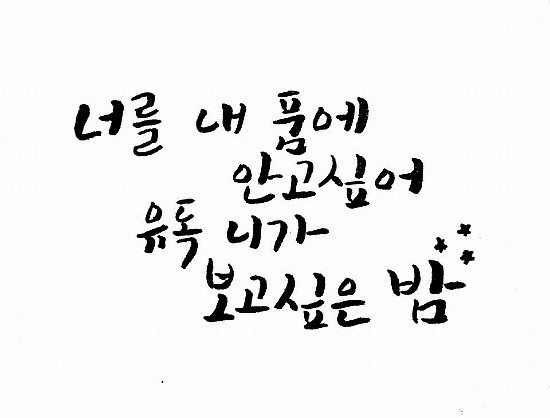 너를 내 품에
안고싶어
유독 니가
보고싶은 밤